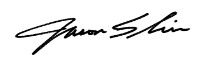 Jason Shin